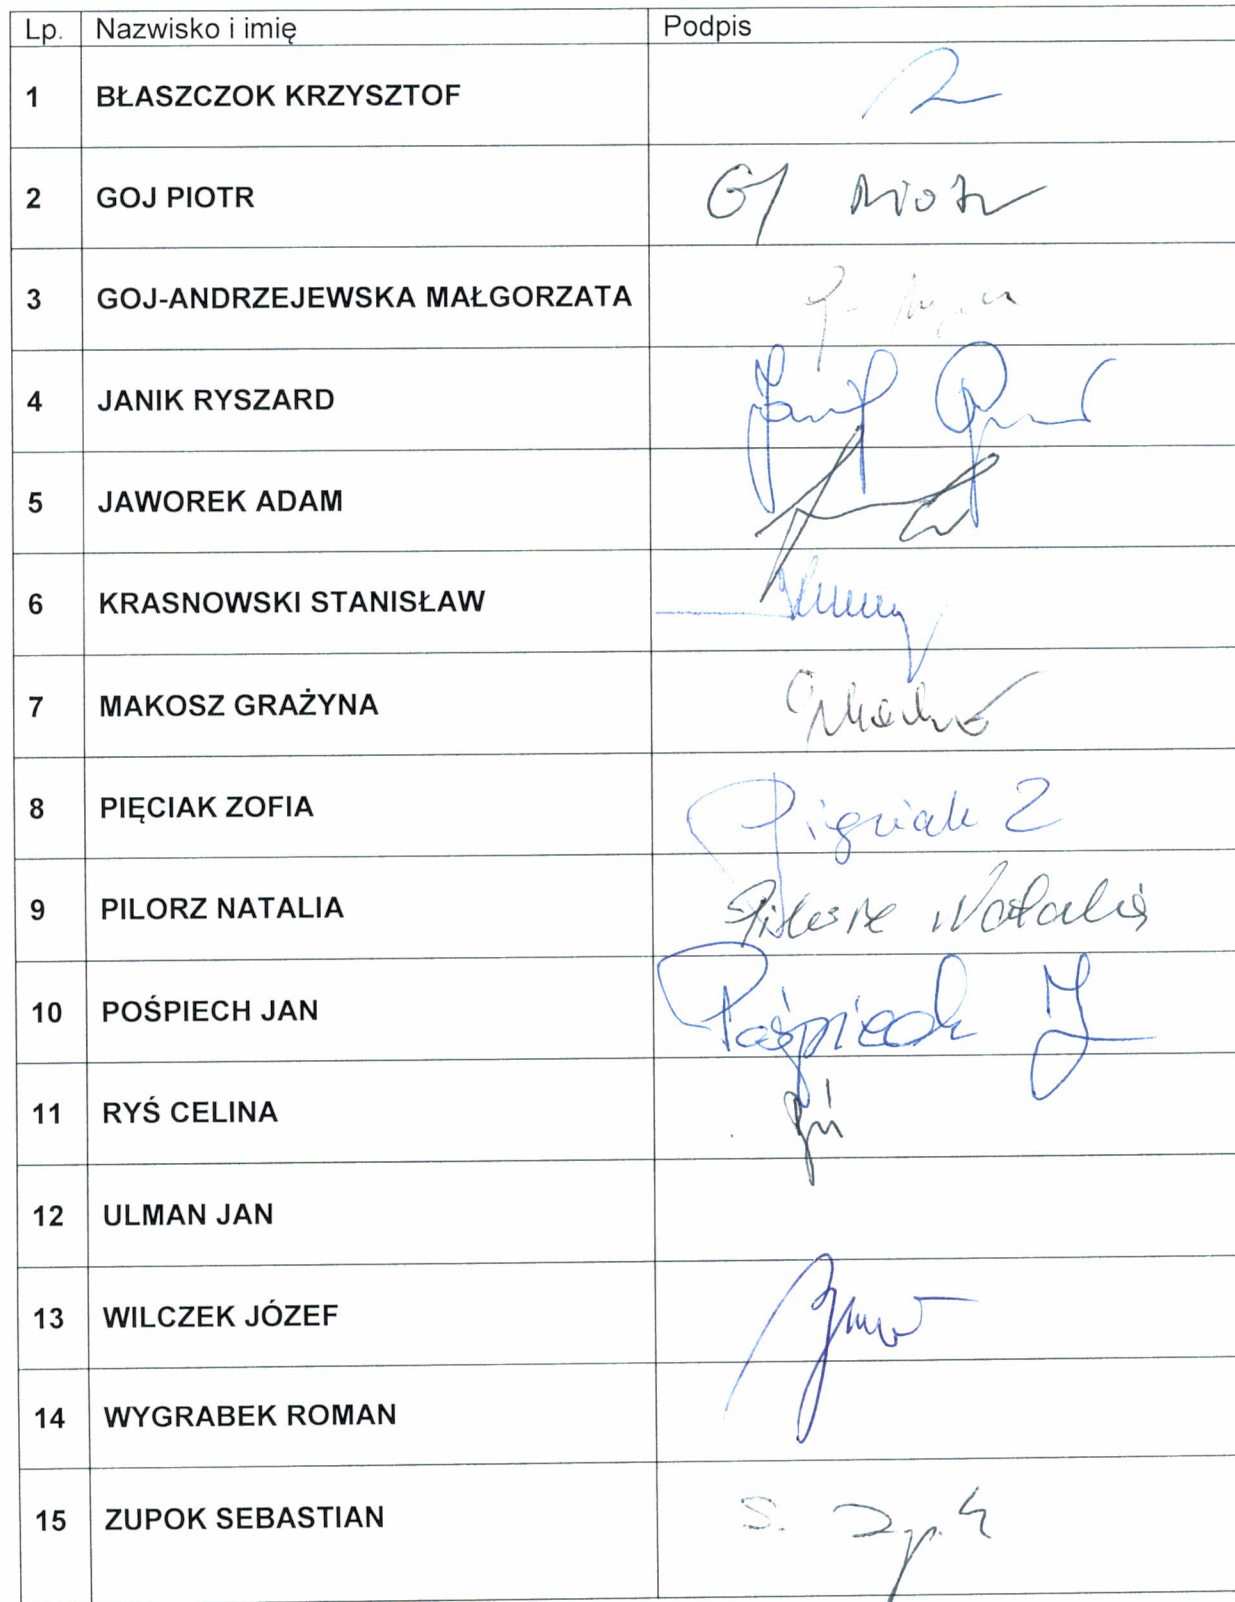 Lp. Nazwisko i imię Podpis
1 BŁASZCZOK KRZYSZTOF
2 GOJ PIOTR Piotr
3 GOJ-ANDRZEJEWSKA MAŁGORZATA
4 JANIK RYSZARD
5 JAWOREK ADAM
6 KRASNOWSKI STANISŁAW
7 MAKOSZ GRAŻYNA
8 PIĘCIAK ZOFIA Pięciak Z
9 PILORZ NATALIA Pilorz Natalia
10 POŚPIECH JAN Pośpiech J
11 RYŚ CELINA
12 ULMAN JAN
13 WILCZEK JÓZEF
14 WYGRABEK ROMAN
15 ZUPOK SEBASTIAN S.